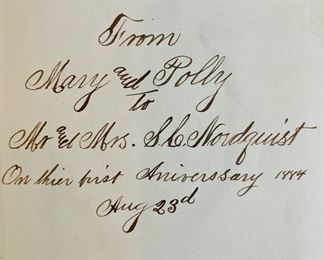 From
Mary and Polly
to
Mr and Mrs. S. C. Nordquist
On thier first Aniverssary 1884
Aug 23d